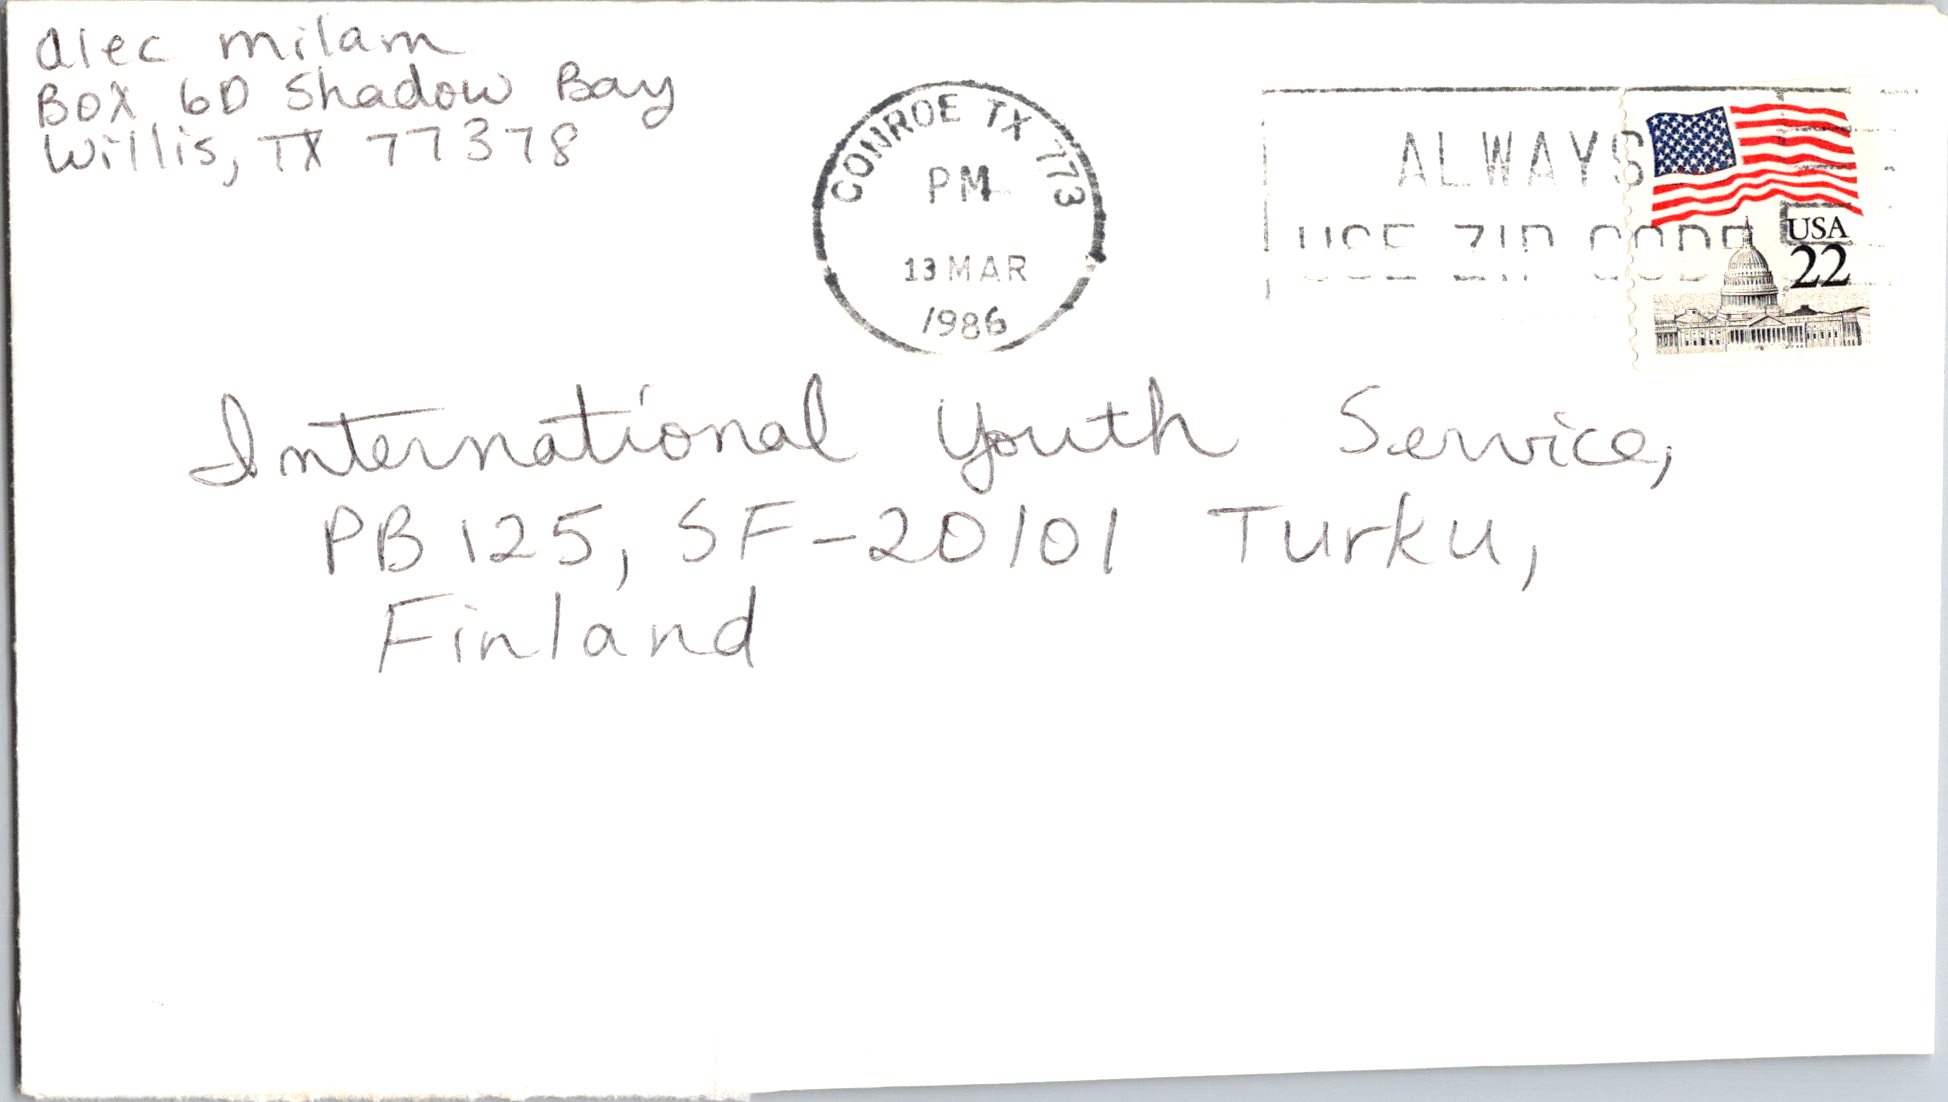 alec milam
Box 6D Shadow Bay
Willis, TX 77378
CONROE TX 773
PM
13 MAR
1986
ALWAYS
USE ZIP CODE
USA
22
International Youth Service,
PB 125, SF-20101 Turku,
Finland